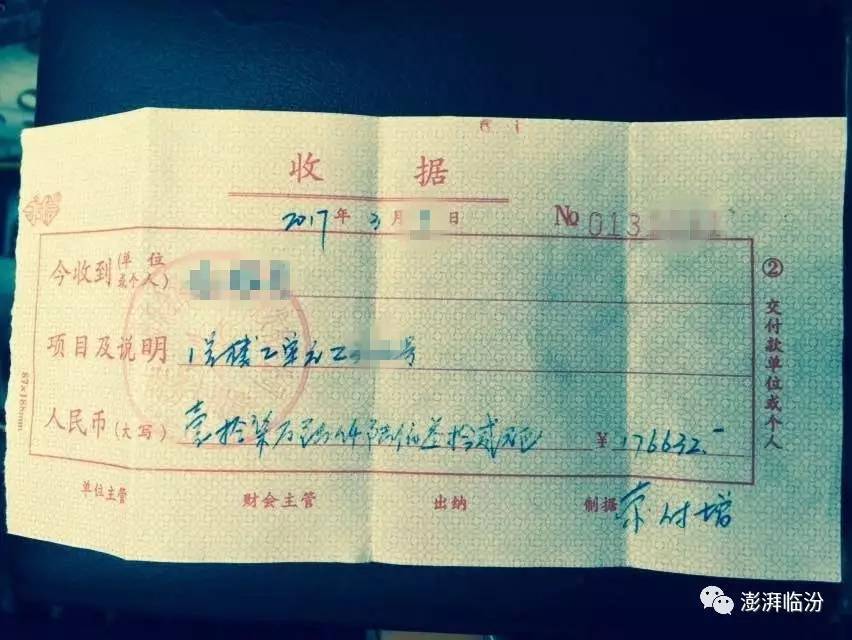 收 据
2017年3月 日 No 013
今收到(单位或个人)
项目及说明 1号楼2单元2 号
人民币(大写) 壹拾柒万陆仟陆佰叁拾贰元 ¥176632.-
单位主管 财会主管 出纳 制据 付增
②交付款单位或个人
87×188mm
澎湃临汾